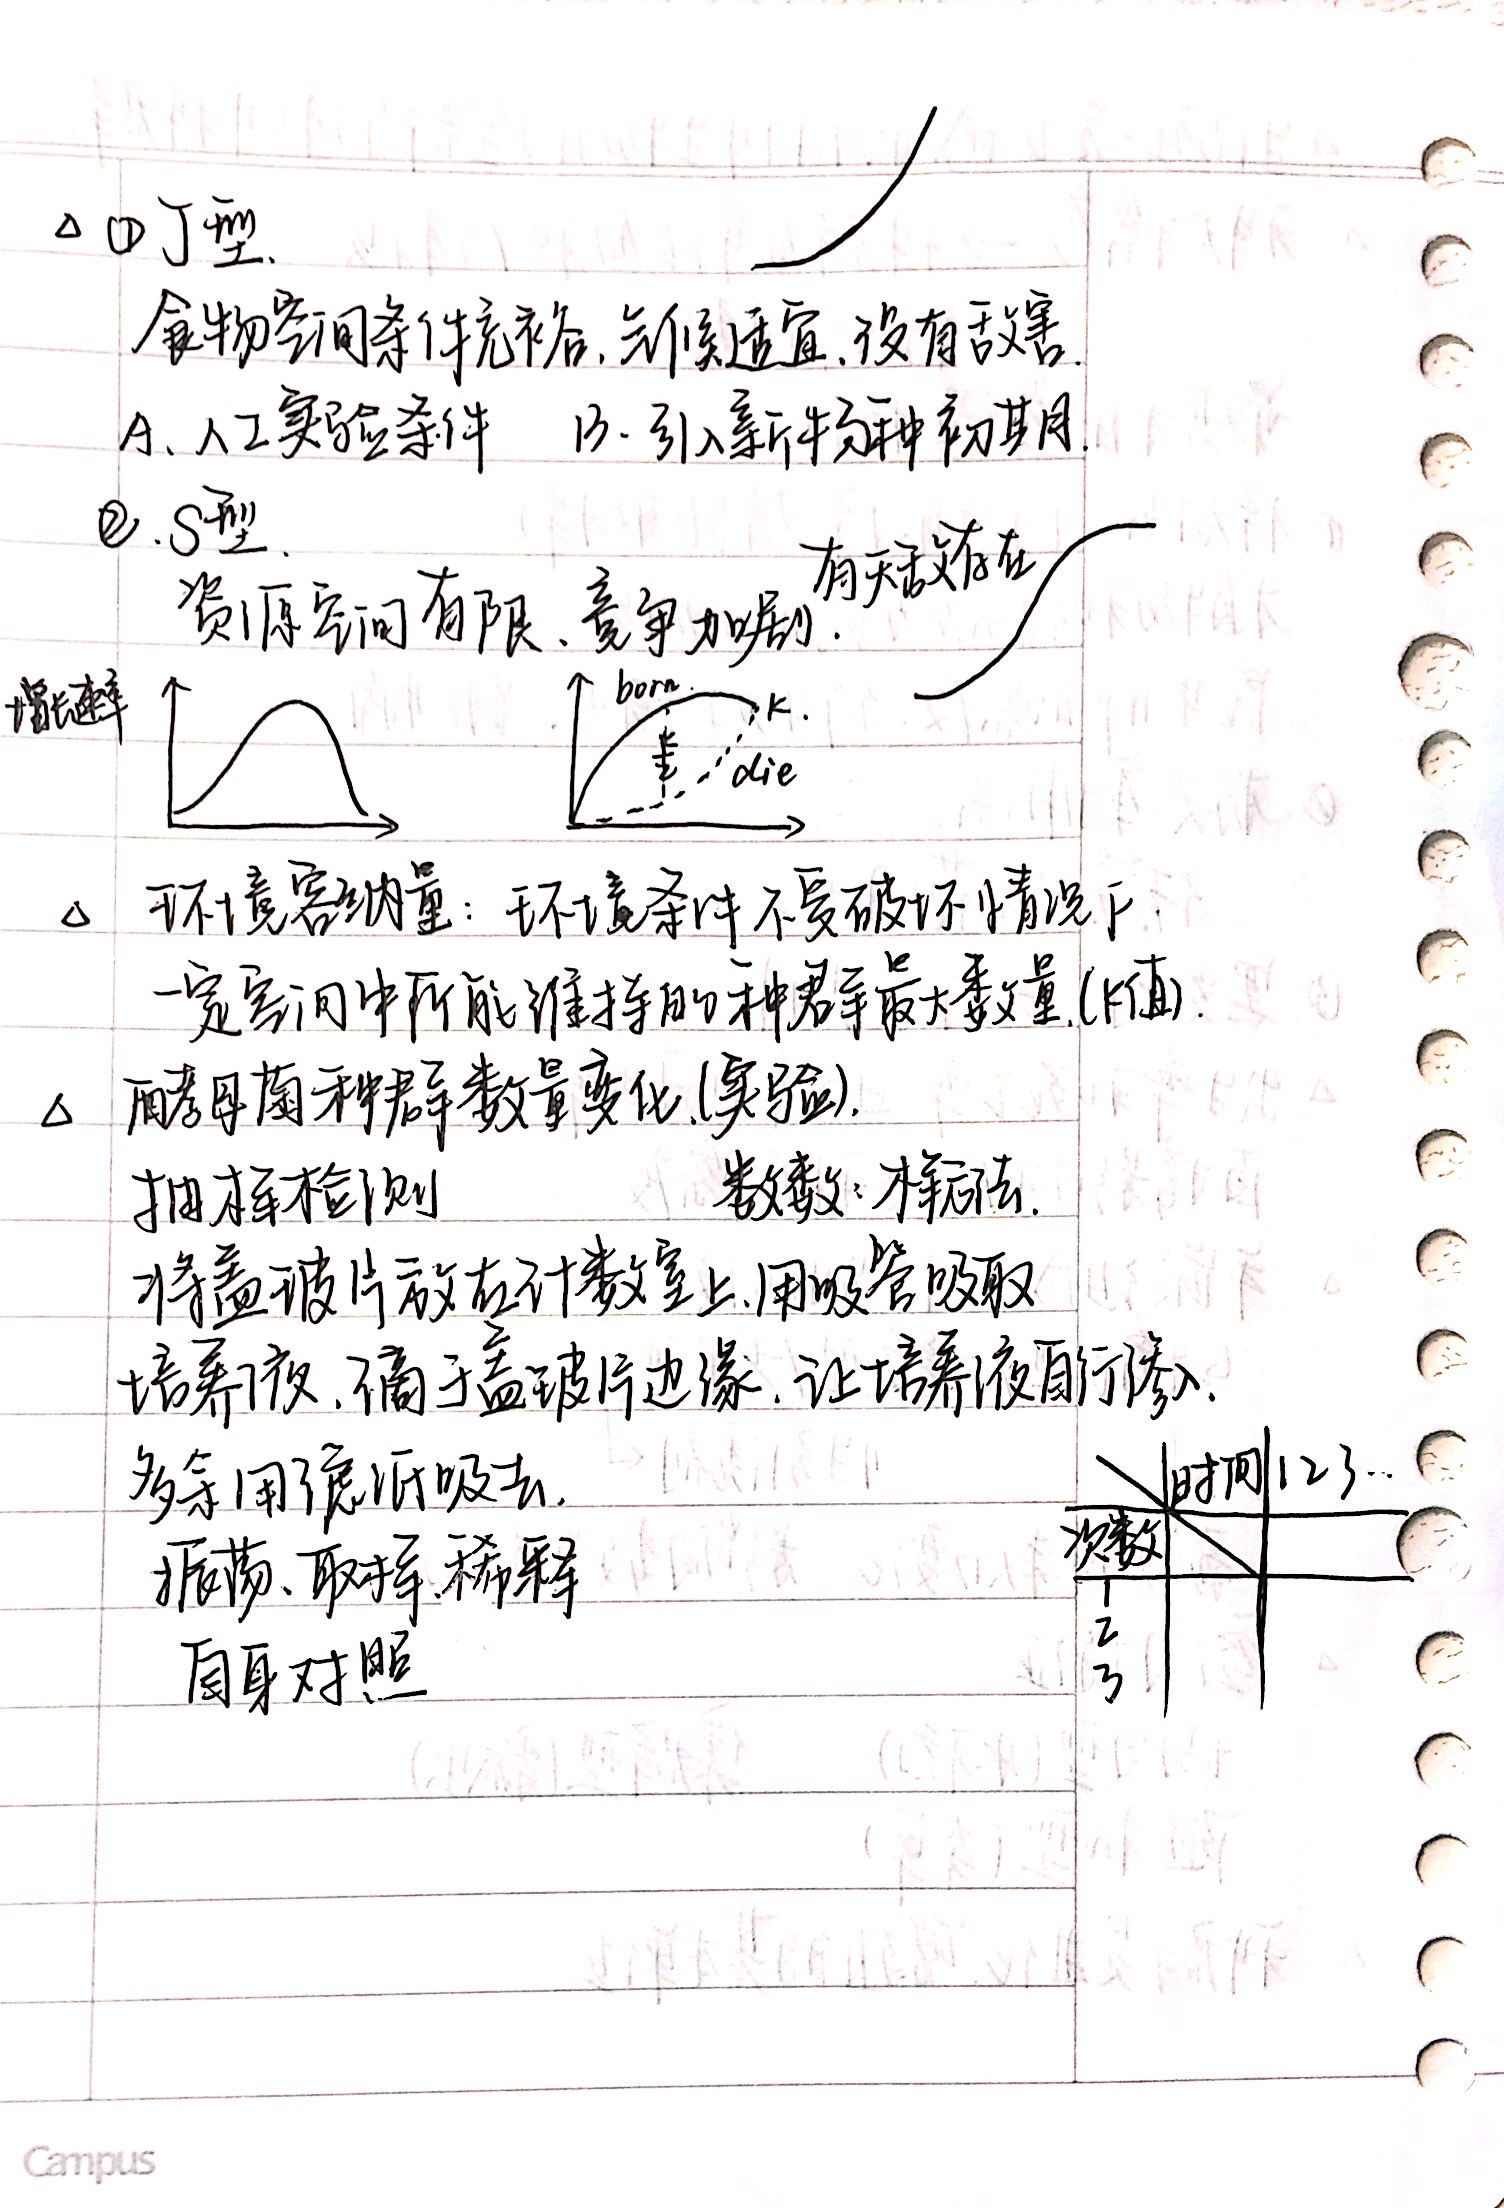 △ ① J型.
食物空间条件充裕、气候适宜、没有敌害.
A、人工实验条件 B. 引入新物种初期.
②. S型.
资源空间有限、竞争加剧. 有天敌存在
增长速率
born.
K.
die
△ 环境容纳量: 环境条件不受破坏情况下.
一定空间中所能维持的种群最大数量.(K值).
△ 酵母菌种群数量变化.(实验).
抽样检测 数数: 样方法.
将盖玻片放在计数室上、用吸管吸取
培养液、滴于盖玻片边缘、让培养液自行渗入.
多余用滤纸吸去.
振荡、取样、稀释
自身对照
时间 1 2 3...
次数
1
2
3
Campus